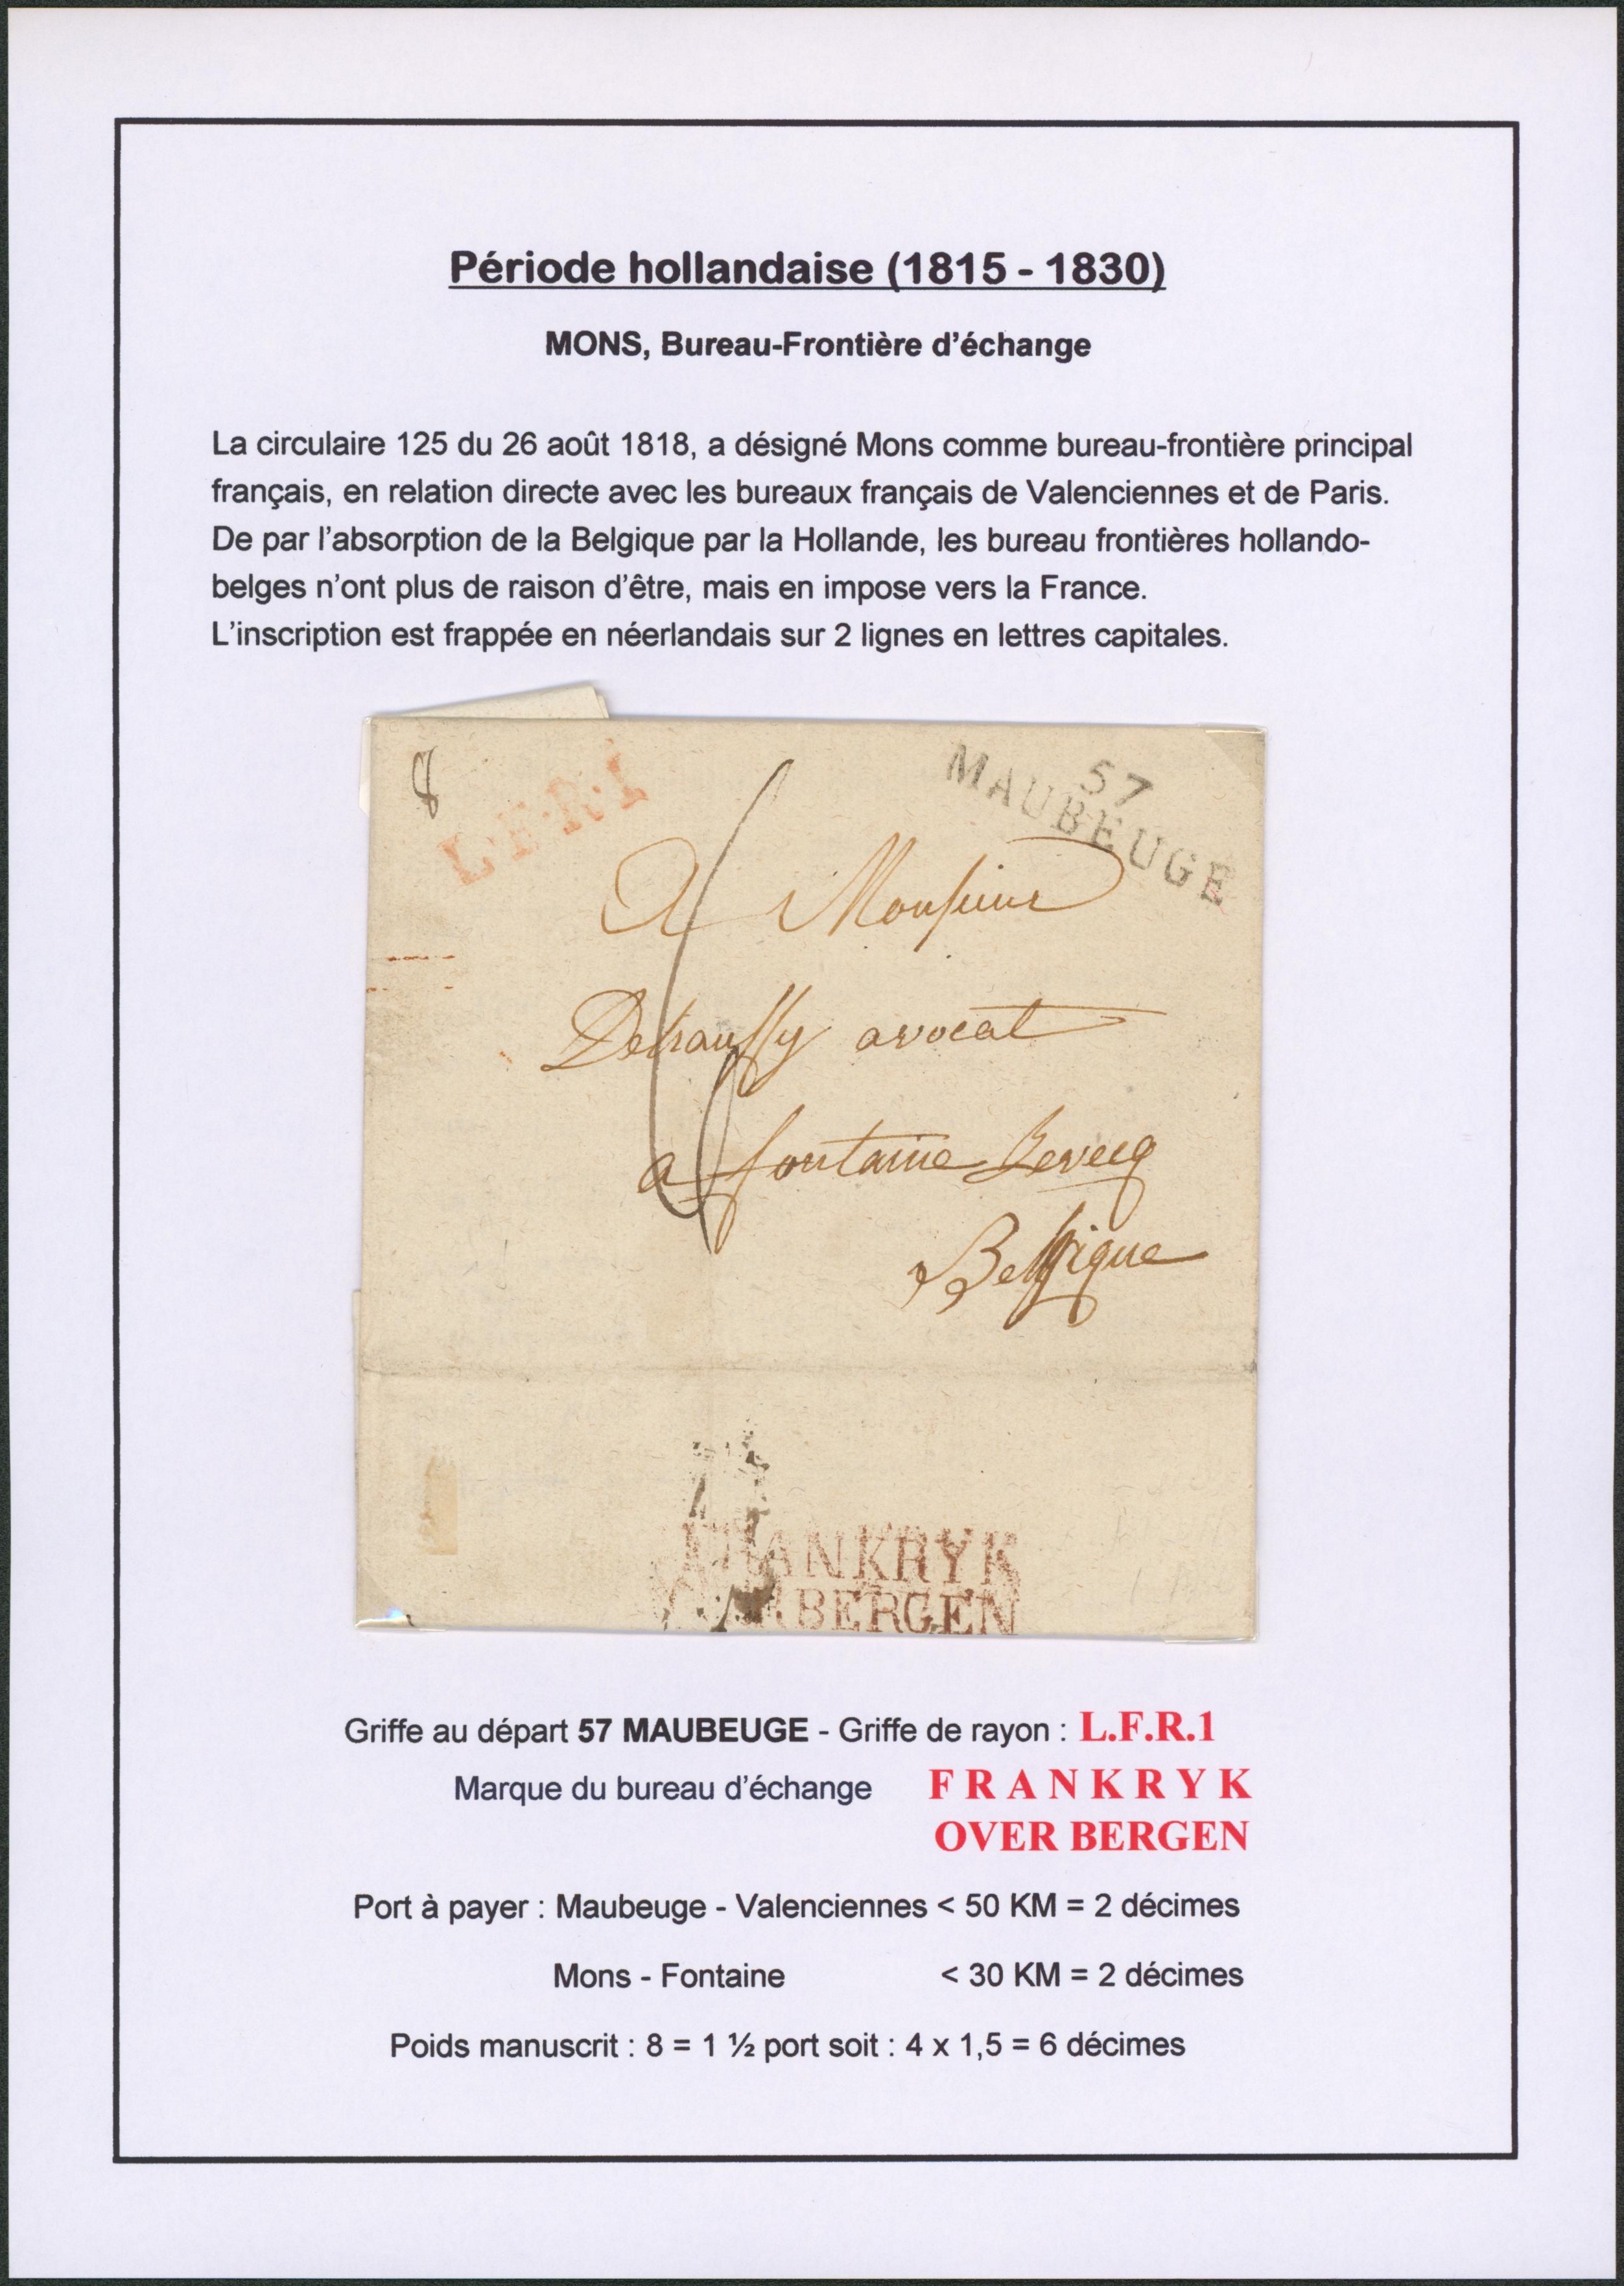 Période hollandaise (1815 - 1830)
MONS, Bureau-Frontière d'échange
La circulaire 125 du 26 août 1818, a désigné Mons comme bureau-frontière principal
français, en relation directe avec les bureaux français de Valenciennes et de Paris.
De par l'absorption de la Belgique par la Hollande, les bureau frontières hollando-
belges n'ont plus de raison d'être, mais en impose vers la France.
L'inscription est frappée en néerlandais sur 2 lignes en lettres capitales.
8
L.F.R.1
57
MAUBEUGE
6
A Monsieur
avocat
a fontaine
Belgique
FRANKRYK
BERGEN
Griffe au départ 57 MAUBEUGE - Griffe de rayon : L.F.R.1
Marque du bureau d'échange FRANKRYK
OVER BERGEN
Port à payer : Maubeuge - Valenciennes < 50 KM = 2 décimes
Mons - Fontaine < 30 KM = 2 décimes
Poids manuscrit : 8 = 1 ½ port soit : 4 x 1,5 = 6 décimes